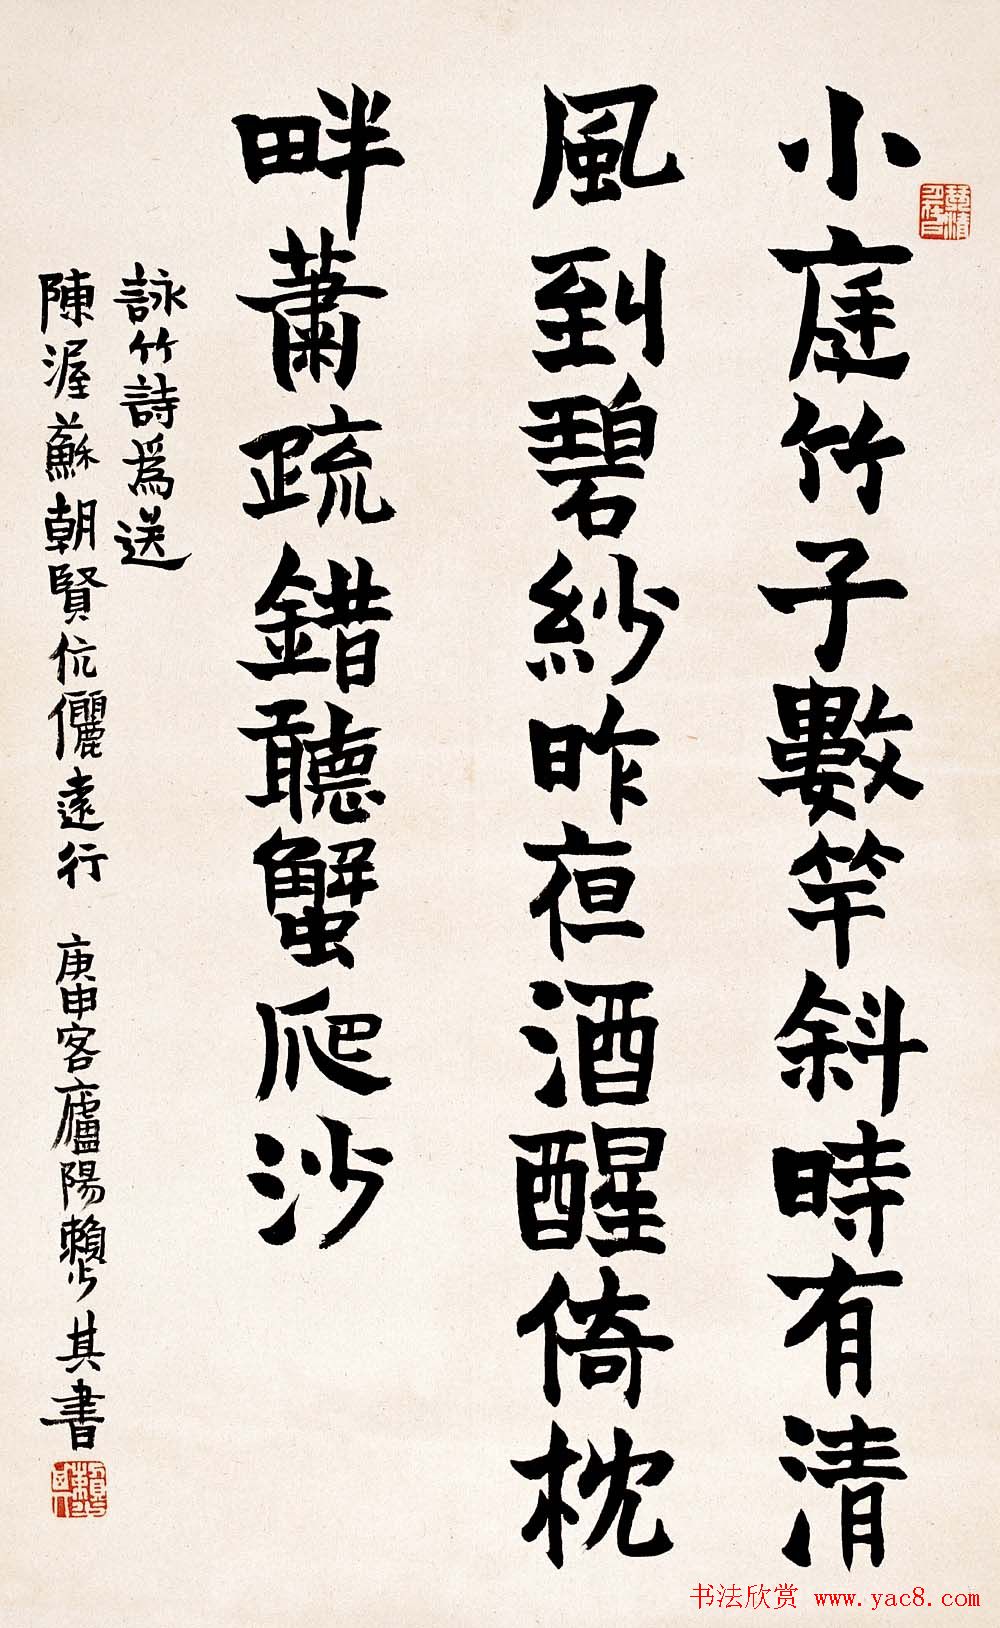 小庭竹子數竿斜時有清
風到碧紗昨夜酒醒倚枕
畔蕭疏錯聽蟹爬沙
詠竹詩為送
陳渥蘇朝賢伉儷遠行 庚申客廬陽賴少其書
书法欣赏 www.yac8.com